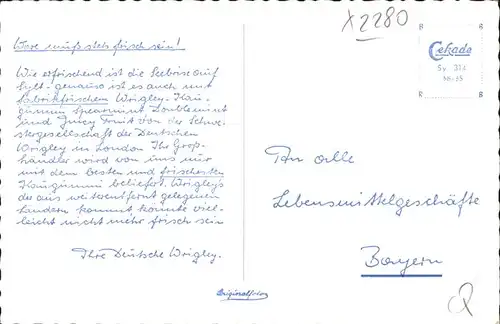 Ware muß stets frisch sein!
Wie erfrischend ist die Seebrise auf
Sylt - genauso ist es auch mit
fabrikfrischem Wrigley-Kau-
gummi Spearmint Doublemint
und Juicy Fruit von der Schwe-
stergesellschaft der Deutschen
Wrigley in London Ihr Groß-
händler wird von uns nur
mit dem besten und frischesten
Kaugummi beliefert. Wrigley's
der aus weitentfernt gelegenen
Ländern kommt könnte viel-
leicht nicht mehr frisch sein
Ihre Deutsche Wrigley.
X2280
Cekade
Sy 314
An alle
Lebensmittelgeschäfte
Bayern
Originalfoto